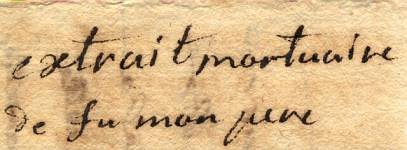 extrait mortuaire
de fu mon pere